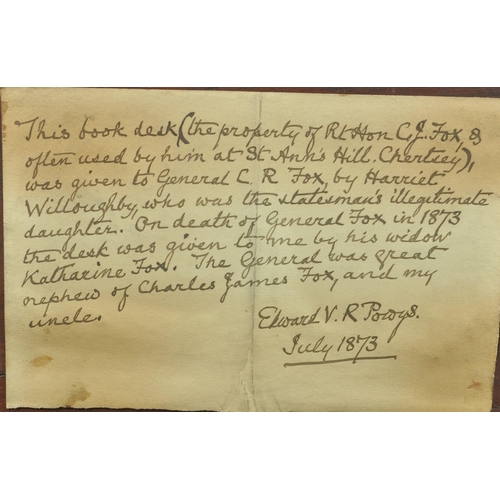 This book desk (the property of Rt Hon C.J. Fox, &
often used by him at St Ann's Hill. Chertsey),
was given to General C. R Fox, by Harriet
Willoughby, who was the statesman's illegitimate
daughter. On death of General Fox in 1873
the desk was given to me by his widow
Katharine Fox. The General was great
nephew of Charles James Fox, and my
uncle.
Edward V. R Powys.
July 1873